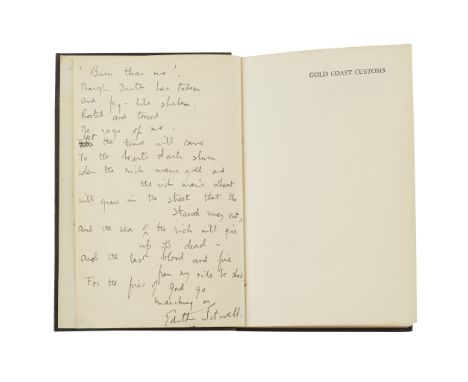 'Burn thou me'.
Though Death has taken
And pig-like shaken,
Rooted and tossed
The rags of me.
Yet the time will come
To the heart's dark slum
When the rich man's gold and
the rich man's wheat
will grow in the street that the
Starved may eat,
and the sea of the rich will give
up its dead -
and the last blood and fire
from my side will be shed
For the fires of God go
marching on
Edith Sitwell
GOLD COAST CUSTOMS